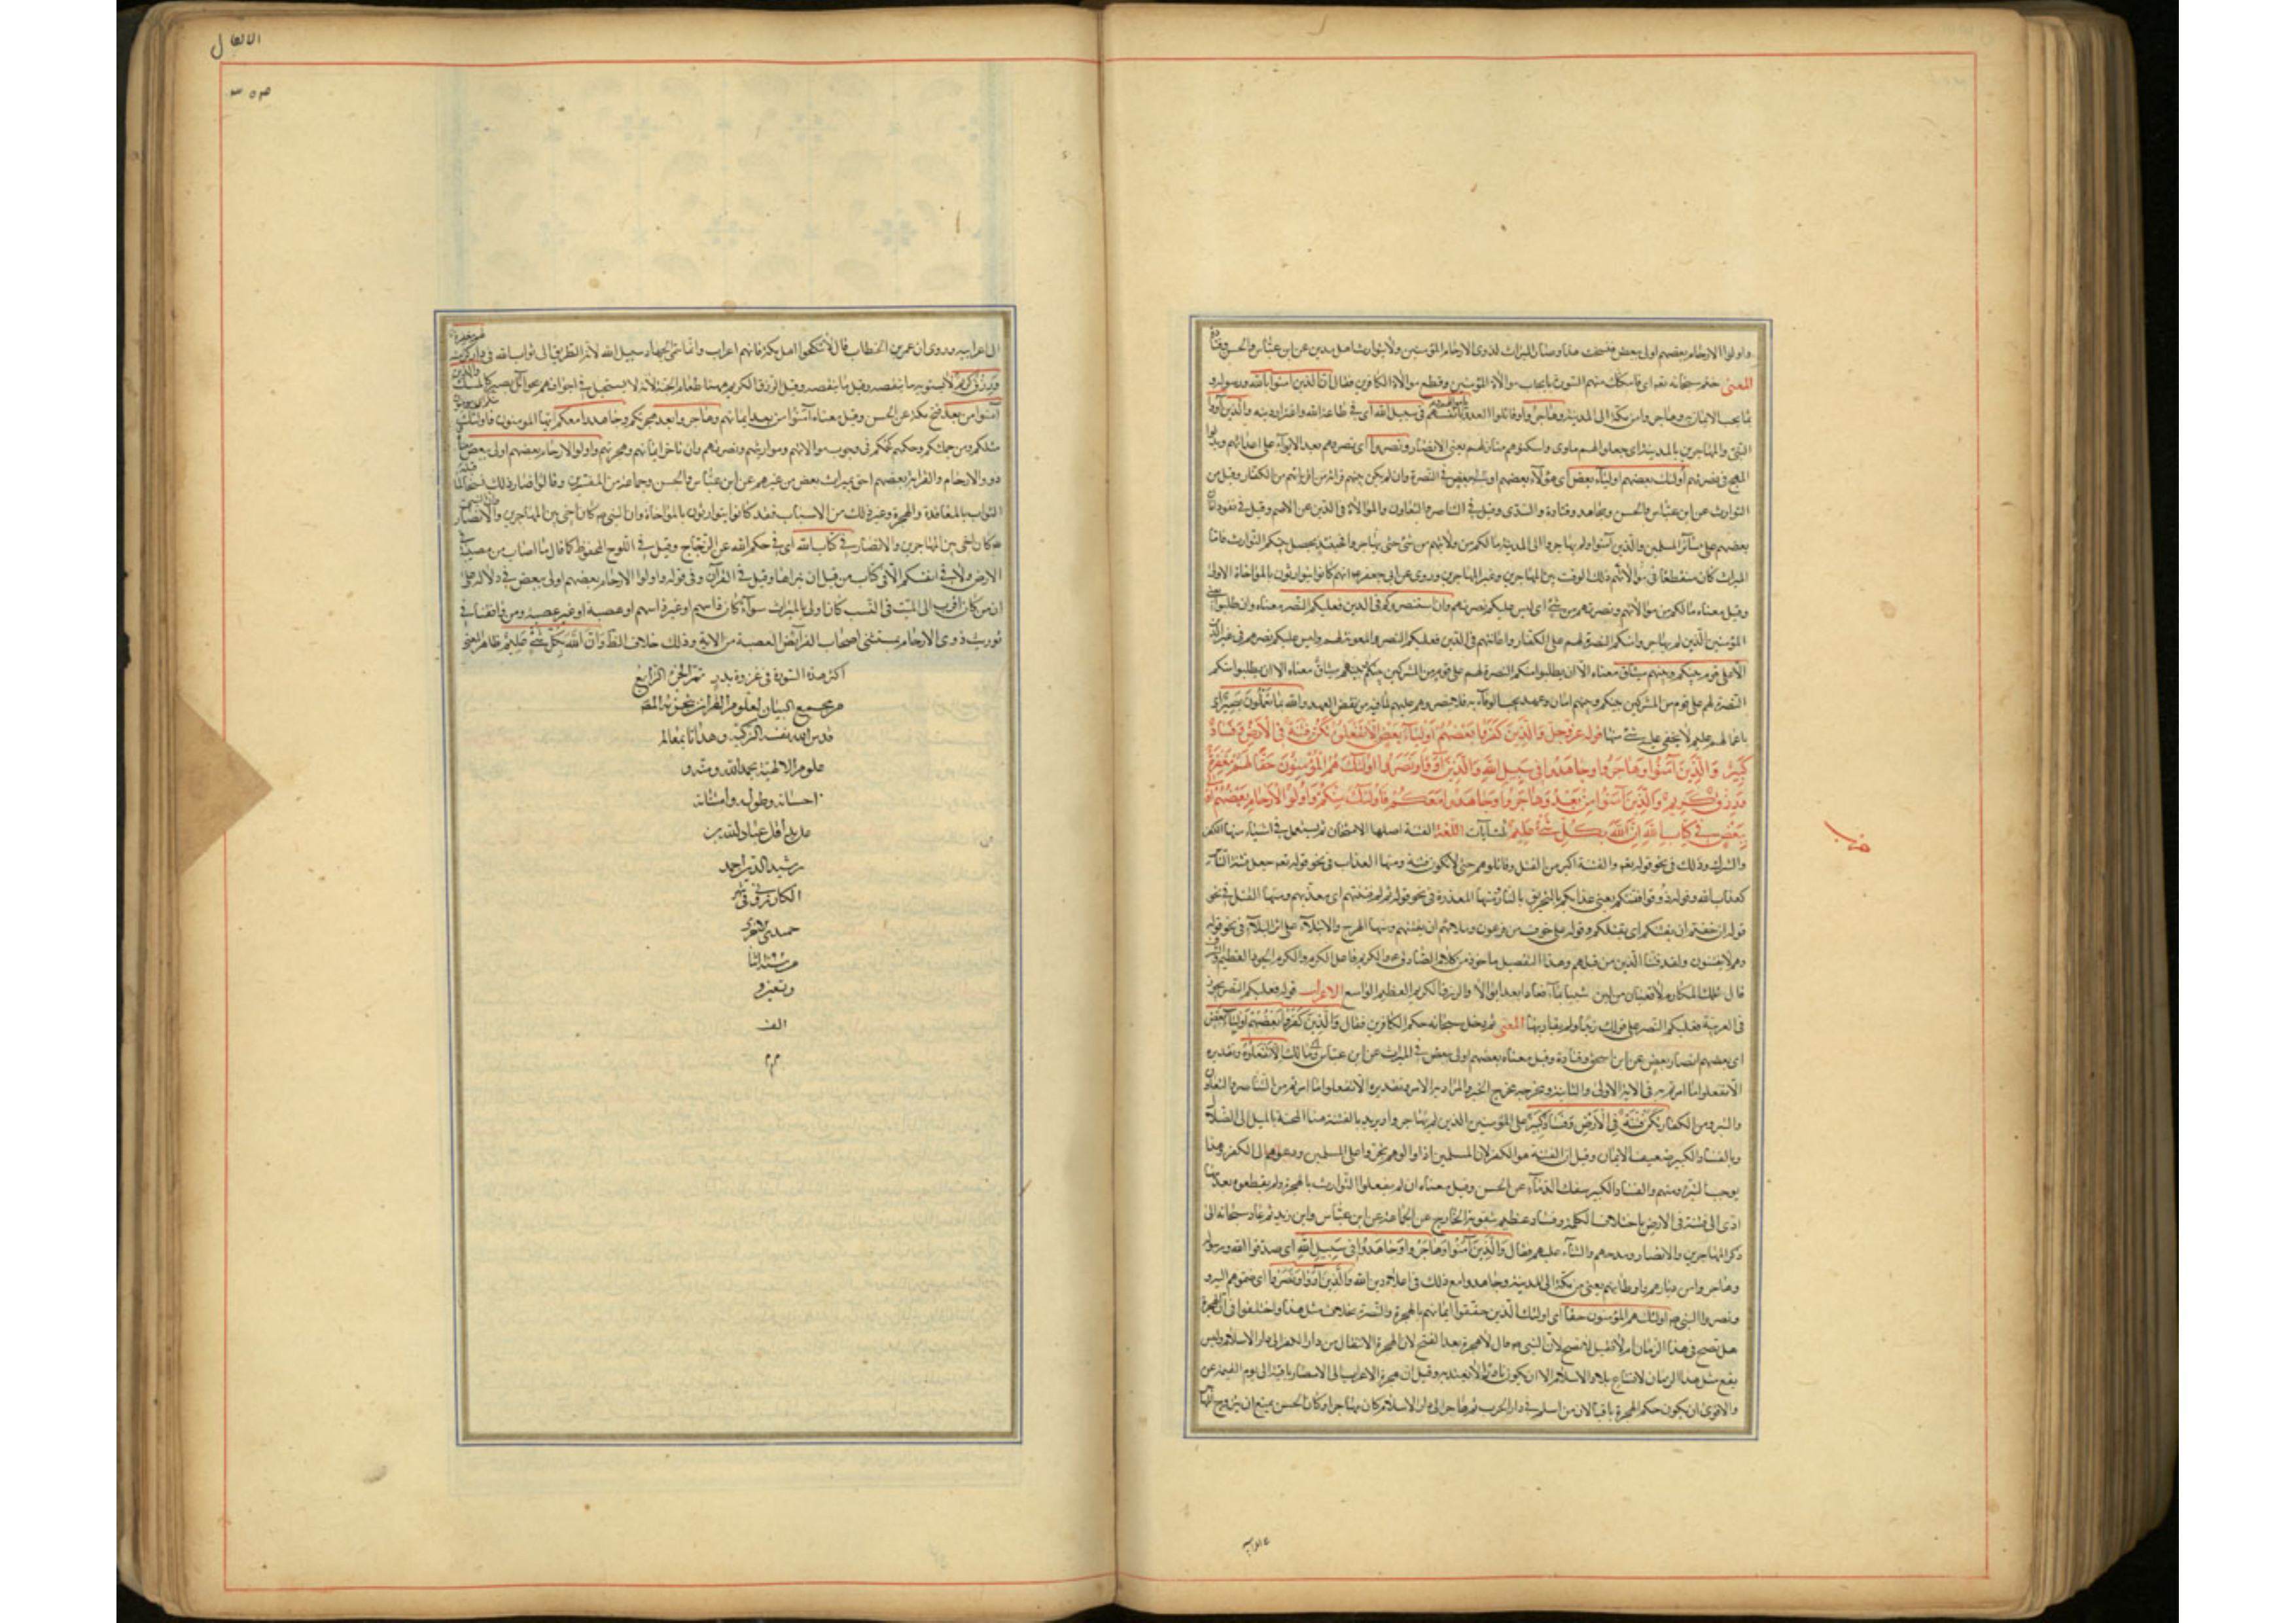 واولوا الارحام بعضهم اولى ببعض فنسخت هذا وصار الميراث لذوى الارحام المؤمنين ولا يتوارث اهل ملتين عن ابن عباس والحسن وقتادة
المعنى ختم سبحانه السورة بايجاب موالاة المؤمنين وقطع موالاة الكافرين فقال ان الذين آمنوا بالله ورسوله و
بما يجب الايمان به وهاجروا من مكة الى المدينة وجاهدوا وقاتلوا العدو باموالهم وانفسهم فى سبيل الله اى فى طاعة الله واعزاز دينه والذين آووا
النبى والمهاجرين بالمدينة اى جعلوا لهم ماوى واسكنوهم منازلهم يعنى الانصار ونصروا اى نصروهم بعد الايواء على اعدائهم وبذلوا
المهج فى نصرتهم اولئك بعضهم اولياء بعض اى هؤلاء بعضهم اولى ببعض فى النصرة وان لم يكن بينهم قرابة من اقربائهم من الكفار وقيل من
التوارث عن ابن عباس والحسن ومجاهد وقتادة والسدى وقيل فى التناصر والتعاون والموالاة فى الدين عن الاصم وقيل فى نفوذ امان
بعضهم على سائر المسلمين والذين آمنوا ولم يهاجروا الى المدينة ما لكم من ولايتهم من شئ حتى يهاجروا فحينئذ يحصل بينكم التوارث فانما
الميراث كان منقطعا فى ذلك الوقت بين المهاجرين وغير المهاجرين وروى عن ابى جعفر انهم كانوا يتوارثون بالمؤاخاة الاولى
وقيل معناه ما لكم من موالاتهم ونصرتهم من شئ اى ليس عليكم نصرتهم وان استنصروكم فى الدين فعليكم النصر معناه وان طلبوا يعنى
المؤمنين الذين لم يهاجروا منكم النصرة لهم على الكفار واعانتهم فى الدين فعليكم النصر والمعونة لهم وليس عليكم نصرهم فى غير الدين
الا على قوم بينكم وبينهم ميثاق معناه الا ان يطلبوا منكم النصرة لهم على قوم من المشركين بينكم وبينهم ميثاق معناه الا ان يطلبوا منكم
النصرة لهم على قوم من المشركين بينكم وبينهم امان وعهد يجب الوفاء به فلا تنصروهم عليهم لما فيه من نقض العهد والله بما تعملون بصير اى
باعمالهم عليم لا يخفى عليه شئ منها قوله عز وجل وَالَّذِينَ كَفَرُوا بَعْضُهُمْ أَوْلِيَاءُ بَعْضٍ إِلَّا تَفْعَلُوهُ تَكُنْ فِتْنَةٌ فِي الْأَرْضِ وَفَسَادٌ
كَبِيرٌ وَالَّذِينَ آمَنُوا وَهَاجَرُوا وَجَاهَدُوا فِي سَبِيلِ اللَّهِ وَالَّذِينَ آوَوْا وَنَصَرُوا أُولَئِكَ هُمُ الْمُؤْمِنُونَ حَقًّا لَهُمْ مَغْفِرَةٌ
وَرِزْقٌ كَرِيمٌ وَالَّذِينَ آمَنُوا مِنْ بَعْدُ وَهَاجَرُوا وَجَاهَدُوا مَعَكُمْ فَأُولَئِكَ مِنْكُمْ وَأُولُو الْأَرْحَامِ بَعْضُهُمْ أَوْلَى
بِبَعْضٍ فِي كِتَابِ اللَّهِ إِنَّ اللَّهَ بِكُلِّ شَيْءٍ عَلِيمٌ آيات اللغة الفتنة اصلها الامتحان ثم يستعمل فى اشياء منها الكفر
والشرك وذلك فى نحو قوله والفتنة اكبر من القتل وقاتلوهم حتى لا تكون فتنة ومنها العذاب فى نحو قوله جعل فتنة الناس
كعذاب الله وقوله ذوقوا فتنتكم يعنى عذابكم بالتحريق بالنار ومنها المعذرة فى نحو قوله ثم لم تكن فتنتهم اى معذرتهم ومنها القتل فى نحو
قوله ان خفتم ان يفتنكم اى يقتلكم وقوله على خوف من فرعون وملائهم ان يفتنهم ومنها الحرج والابتلاء على اثر البلاء فى نحو قوله
وهم لا يفتنون ولقد فتنا الذين من قبلهم وهذا التفصيل ماخوذ من كلام الصادق والكريم فاعل الكرم والكرم الجود العظيم والشرف
قال تلك المكارم لا قعبان من لبن شيبا بماء فعادا بعد ابوالا والرزق الكريم العظيم الواسع الاعراب قوله فعليكم النصر يجوز
فى العربية فعليكم النصر على قولك زيدا ولم يقرا بها المعنى ثم دخل سبحانه حكم الكافرين فقال وَالَّذِينَ كَفَرُوا بَعْضُهُمْ أَوْلِيَاءُ بَعْضٍ
اى بعضهم انصار بعض عن ابن اسحق وقتادة وقيل معناه بعضهم اولى ببعض فى الميراث عن ابن عباس وابى مالك الا تفعلوه وتقديره
الا تفعلوا ما امرتم به فى الاية الاولى والثانية ومخرجه مخرج الخبر والمراد به الامر وتقديره الا تفعلوا ما امرتم من التناصر والتعاون
والتبرؤ من الكفار تكن فتنة فى الارض وفساد كبير على المؤمنين الذين لم يهاجروا ويريد بالفتنة هنا المحنة بالميل الى الضلال
وبالفساد الكبير ضعيف الايمان وقيل ان الفتنة هو الكفر لان المسلمين اذا والوهم تجرؤا على المسلمين ودعوهم الى الكفر وهذا
يوجب التبرؤ منهم والفساد الكبير سفك الدماء عن الحسن وقيل معناه ان لم يفعلوا التوارث بالهجرة ولم يقطعوه بعدمها
ادى الى فتنة فى الارض باختلاف الكلمة وفساد عظيم بتقوية الخارج عن الجماعة عن ابن عباس وابن زيد ثم عاد سبحانه الى
ذكر المهاجرين والانصار ومدحهم والثناء عليهم فقال وَالَّذِينَ آمَنُوا وَهَاجَرُوا وَجَاهَدُوا فِي سَبِيلِ اللَّهِ اى صدقوا الله ورسوله
وهاجروا من ديارهم واوطانهم يعنى من مكة الى المدينة وجاهدوا مع ذلك فى اعلاء دين الله وَالَّذِينَ آوَوْا وَنَصَرُوا اى ضموهم اليهم و
ونصروا النبى اولئك هم المؤمنون حقا اى اولئك الذين حققوا ايمانهم بالهجرة والنصرة بخلاف مثل هذا واختلفوا فى ان الهجرة
هل تصح فى هذا الزمان ام لا فقيل لا تصح لان النبى قال لا هجرة بعد الفتح لان الهجرة الانتقال من دار الكفر الى دار الاسلام وليس
يقع مثل هذا الزمان لاتساع بلاد الاسلام الا ان يكون نادرا لا يعتد به وقيل ان هجرة الاعراب الى الامصار باقية الى يوم القيمة عن
والاقوى ان يكون حكم الهجرة باقيا لان من اسلم فى دار الحرب ثم هاجر الى دار الاسلام كان مهاجرا وكان الحسن يمنع ان يتزوج المهاجر
الانفال
٣٥٣
الى اعرابيه وروى ان عمر بن الخطاب قال لا تنكحوا اهل مكة فانهم اعراب وانما سمى الجهاد سبيل الله لانه الطريق الى ثواب الله فى دار كرامته
ورزق كريم لا يشوبه ما ينغصه وقيل ما ينقصه وقيل الرزق الكريم هنا طعام الجنة لانه لا يستحيل فى اجوافهم نجوا بل يصير كالمسك والذين
آمنوا من بعد فتح مكة عن الحسن وقيل معناه آمنوا من بعد ايمانهم وهاجروا بعد هجرتكم وجاهدوا معكم ايها المومنون فاولئك
مثلكم ومن جملتكم وحكمهم حكمكم فى وجوب موالاتهم ومواريثهم ونصرتهم وان تاخر ايمانهم وهجرتهم واولوا الارحام بعضهم اولى ببعض معناه
ذوو الارحام والقرابة بعضهم احق بميراث بعض من غيرهم عن ابن عباس والحسن وجماعة من المفسرين وقالوا صار ذلك نسخا
التوارث بالمعاقدة والهجرة وغير ذلك من الاسباب فقد كانوا يتوارثون بالمؤاخاة وان النبى كان آخى بين المهاجرين والانصار
كان آخى بين المهاجرين والانصار فى كتاب الله اى فى حكم الله عن الزجاج وقيل فى اللوح المحفوظ كما قال ما اصاب من مصيبة فى
الارض ولا فى انفسكم الا فى كتاب من قبل ان نبراها وقيل فى القرآن وفى قوله واولوا الارحام بعضهم اولى ببعض فيه دلالة على
ان من كان اقرب الى الميت فى النسب كان اولى بالميراث سواء كان ذا سهم او غير ذى سهم او عصبة او غير عصبة ومن وافقنا فى
توريث ذوى الارحام يستثنى اصحاب الفرائض العصبة من الاية وذلك خلاف الظ وان الله بكل شئ عليم ظاهر المعنى
اكثر هذه السورة فى غزوة بدر تم الجزء الرابع
من مجمع البيان لعلوم القرآن
قدس الله نفسه الزكية وهدانا بمعالم
علوم الالهية بحمد الله ومنه و
احسانه وطوله وامتنانه
على يد اقل عباد الله بن
رشيد الدين احمد
الكازرونى فى شهر
جمادى الاخرى
من سنة اثنا
وتسعين و
الف
م م